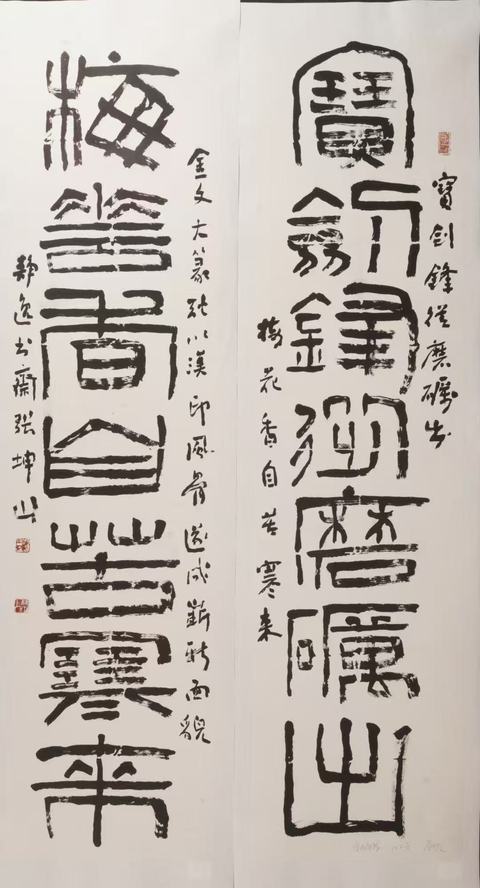 寶劍鋒從磨礪出
寶劍鋒從磨礪出
梅花香自苦寒来
金文大篆以漢印風骨造成嶄新面貌
梅華香自苦寒來
静逸书齋張坤山